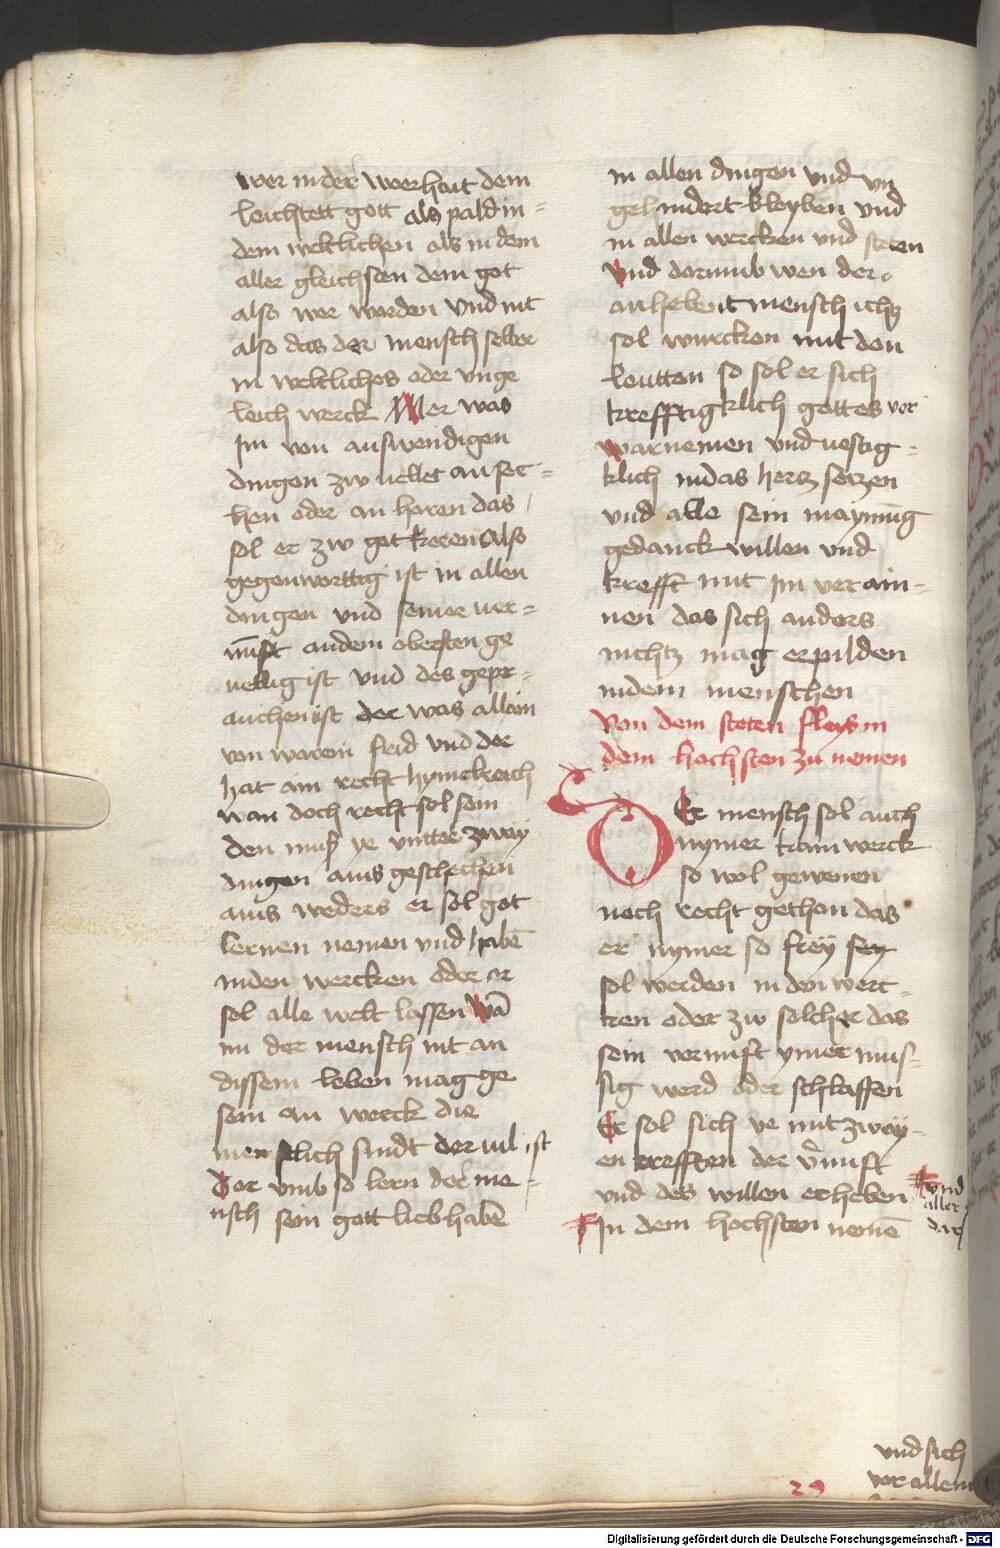 wer in der werhait dem
leichtett gott als pald in -
dem weltlichen als in dem
aller gleichsten dem got
also wer worden vnd nit
also das der mensch selber
in weltliches oder vnge
leich werck Wer was
im von auswendigen
dingen zw vellet an sec -
hen oder an horen das
sol er zw got keren Also
gegenwerttig ist in allen
dingen vnd seiner ver -
nūft an dem obersten ge
vellig ist vnd des gepr -
auchen ist der was allain
von warem frid vnd der
hat ain recht hymelreich
wan doch recht sol sein
den muß ye vntter zway
dingen ains geschechen
ains weders er sol got
lernen nemen vnd habē
in den wercken oder er
sol alle welt lassen wā
nu der mensch nit an
dissem leben mag ge
sein an werck die
menschlich sindt der vil ist
Dor vmb so lern der me -
nsch sein gott lieb habē
in allen dingen vnd vn
gehindert bleyben vnd
in allen wercken vnd steten
Vnd dorumb wen der
anhebent mensch ichtz
sol wurcken mit den
leutten so sol er sich
krefftigklich gottes vor
warnemen vnd vestig -
klich in das hertz setzen
vnd alle sein maynūg
gedanck willen vnd
krefft mit im verain -
nen das sich anders
nichtz mag erpilden
in dem menschen
Von dem steten fleys in
dem hochsten zu nemen
DEr mensch sol auch
nymer kain werck
so wol gewenen
noch recht gethon das
er nymer so frey sey
sol werden in den werc
ken oder zw solcher das
sein vernuft ymer mus -
sig werd oder schlaffen
Er sol sich ye mit zway -
en krefften der v̄nuft
vnd des willen erheben
In dem hochsten nemē
vnd
aller
dar
vnd sich
vor allem
29
Digitalisierung gefördert durch die Deutsche Forschungsgemeinschaft - DFG